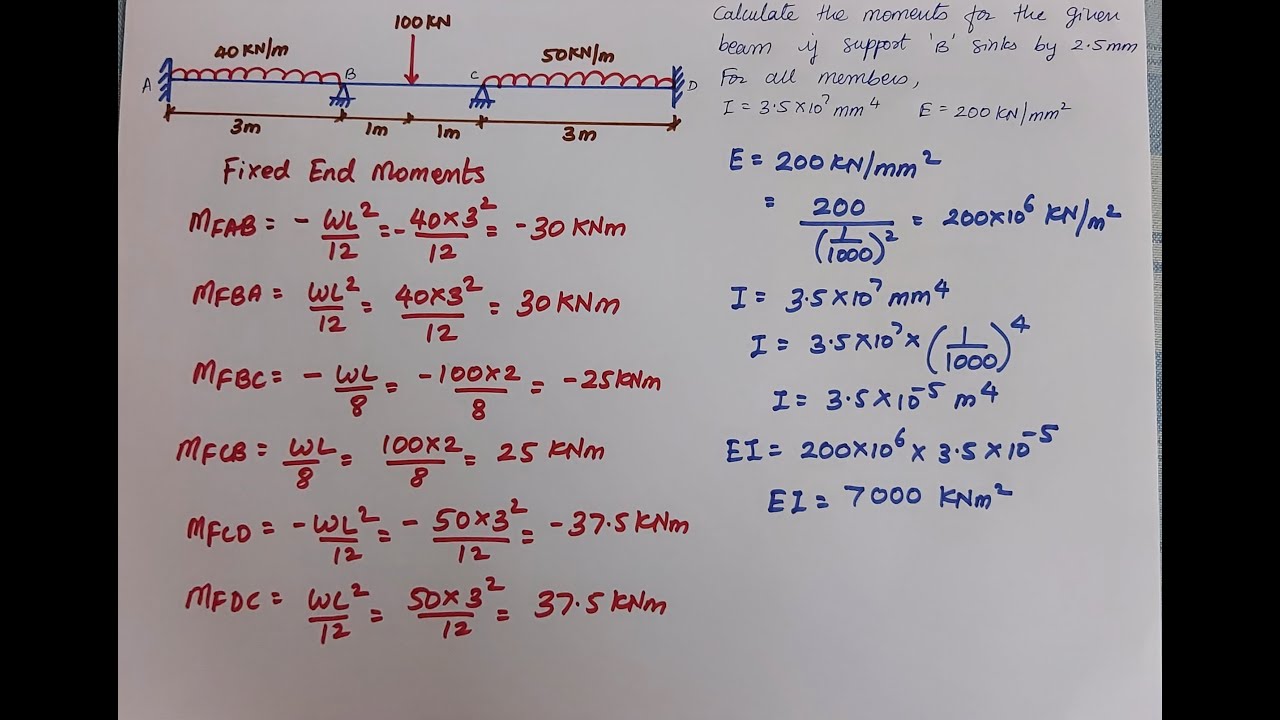 100KN
40KN/m
50KN/m
A
B
C
D
3m
1m
1m
3m
Calculate the moments for the given
beam if support 'B' sinks by 2.5mm
For all members,
I = 3.5×10⁷ mm⁴ E = 200 KN/mm²
Fixed End Moments
MFAB = - WL²/12 = - 40×3²/12 = -30 KNm
MFBA = WL²/12 = 40×3²/12 = 30 KNm
MFBC = - WL/8 = -100×2/8 = -25KNm
MFCB = WL/8 = 100×2/8 = 25 KNm
MFCD = - WL²/12 = - 50×3²/12 = -37.5KNm
MFDC = WL²/12 = 50×3²/12 = 37.5KNm
E = 200KN/mm²
= 200/(1/1000)² = 200×10⁶ KN/m²
I = 3.5×10⁷ mm⁴
I = 3.5×10⁷ × (1/1000)⁴
I = 3.5×10⁻⁵ m⁴
EI = 200×10⁶ × 3.5×10⁻⁵
EI = 7000 KNm²